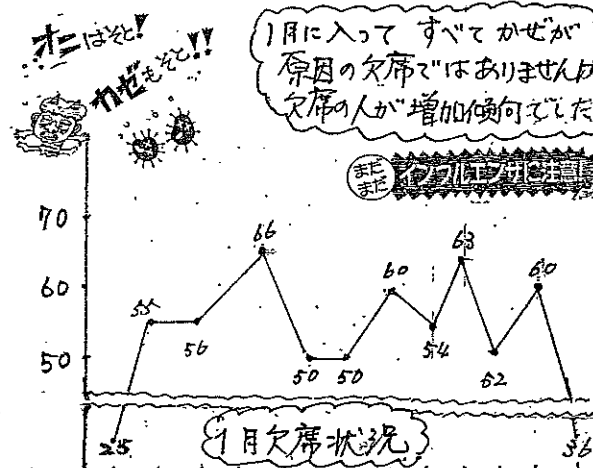 オニはそと!
カゼもそと!!
1月に入って すべて かぜが
原因の欠席ではありませんが
欠席の人が増加傾向でした
まだまだ
インフルエンザに注意!
70
60
50
25
55
56
66
50
50
60
54
63
52
60
36
1月欠席状況